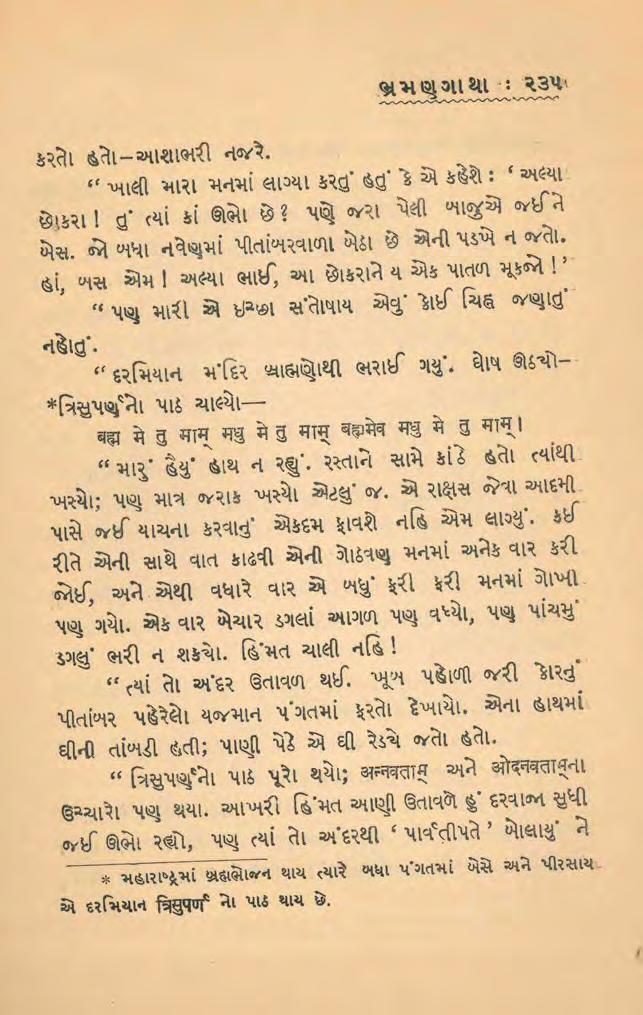 ભ્રમણગાથા : ૨૩૫
કરતો હતો—આશાભરી નજરે.
“ ખાલી મારા મનમાં લાગ્યા કરતું હતું કે એ કહેશે : ‘ અલ્યા
છોકરા ! તું ત્યાં કાં ઊભો છે ? પણે જરા પેલી બાજુએ જઈને
બેસ. જો બધા નવેણમાં પીતાંબરવાળા બેઠા છે એની પડખે ન જતો.
હાં, બસ એમ ! અલ્યા ભાઈ, આ છોકરાને ય એક પાતળ મૂકજો !’
“ પણ મારી એ ઇચ્છા સંતોષાય એવું કોઈ ચિહ્ન જણાતું
નહોતું.
“ દરમિયાન મંદિર બ્રાહ્મણોથી ભરાઈ ગયું. ઘોષ ઊઠ્યો—
*ત્રિસુપર્ણનો પાઠ ચાલ્યો—
ब्रह्म मे तु माम् मधु मे तु माम् ब्रह्ममेव मधु मे तु माम् ।
“ મારું હૈયું હાથ ન રહ્યું. રસ્તાને સામે કાંઠે હતો ત્યાંથી
ખસ્યો; પણ માત્ર જરાક ખસ્યો એટલું જ. એ રાક્ષસ જેવા આદમી
પાસે જઈ યાચના કરવાનું એકદમ ફાવશે નહિ એમ લાગ્યું. કઈ
રીતે એની સાથે વાત કાઢવી એની ગોઠવણ મનમાં અનેક વાર કરી
જોઈ, અને એથી વધારે વાર એ બધું ફરી ફરી મનમાં ગોખી
પણ ગયો. એક વાર બેચાર ડગલાં આગળ પણ વધ્યો, પણ પાંચમું
ડગલું ભરી ન શક્યો. હિંમત ચાલી નહિ !
“ ત્યાં તો અંદર ઉતાવળ થઈ. ખૂબ પહોળી જરી કોરનું
પીતાંબર પહેરેલો યજમાન પંગતમાં ફરતો દેખાયો. એના હાથમાં
ઘીની તાંબડી હતી; પાણી પેઠે એ ઘી રેડચે જતો હતો.
“ ત્રિસુપર્ણનો પાઠ પૂરો થયો; अन्नवताम् અને ओदनवताम्ના
ઉચ્ચારો પણ થયા. આખરી હિંમત આણી ઉતાવળે હું દરવાજા સુધી
જઈ ઊભો રહ્યો, પણ ત્યાં તો અંદરથી ‘ પાર્વતીપતે ’ બોલાયું ને
* મહારાષ્ટ્રમાં બ્રહ્મભોજન થાય ત્યારે બધા પંગતમાં બેસે અને પીરસાય
એ દરમિયાન त्रिसुपर्ण નો પાઠ થાય છે.